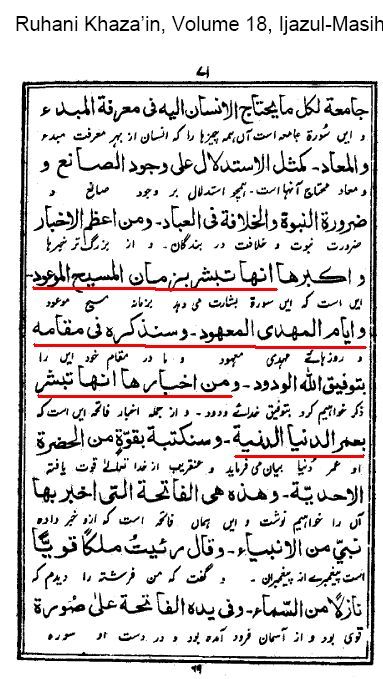 Ruhani Khaza'in, Volume 18, Ijazul-Masih
٧١
جامعة لكل ما يحتاج الانسان اليه فى معرفة المبدء
و ایں سُورۃ جامعہ است آں ہمہ چیزہا را کہ انسان از بہر معرفت مبدء
والمعاد۔ كمثل الاستدلال على وجود الصانع و
و معاد محتاج آنہا است۔ ہمچو استدلال بر وجود صانع و
ضرورة النبوة والخلافة فى العباد۔ ومن اعظم الاخبار
ضرورت نبوت و خلافت در بندگان۔ و از بزرگ تر خبرہا
و اكبرها انها تبشر بزمان المسيح الموعود۔
ایں است کہ ایں سورۃ بشارت می دہد بزمانہ مسیح موعود
و ايام المهدى المعهود۔ وسنذكره فى مقامه
و روزہائے مہدی معہود و ما در مقام خود ایں را
بتوفيق الله الودود۔ ومن اخبارها انها تبشر
ذکر خواہیم کرد بتوفیق خدائے ودود۔ و از جملہ اخبار فاتحہ ایں است کہ
بعمر الدنيا الدنية۔ وسنكتبه بقوةٍ من الحضرة
او عمر دُنیا بیان می فرماید و عنقریب از خدا تعالےٰ قوت یافتہ
الاحديّة۔ وهذه هى الفاتحة التى اخبر بها
آں را خواہیم نوشت و ایں ہماں فاتحہ است کہ ازو خبر دادہ
نبيّ من الانبياء۔ وقال رئيتُ ملكًا قويًّا
است پیغمبرے از پیغمبران۔ و گفت کہ من فرشتہ را دیدم کہ
نازلًا من السّماء۔ وفى يده الفاتحة على صُورة
قوی بود و از آسمان فرود آمدہ بود و در دست او سورہ